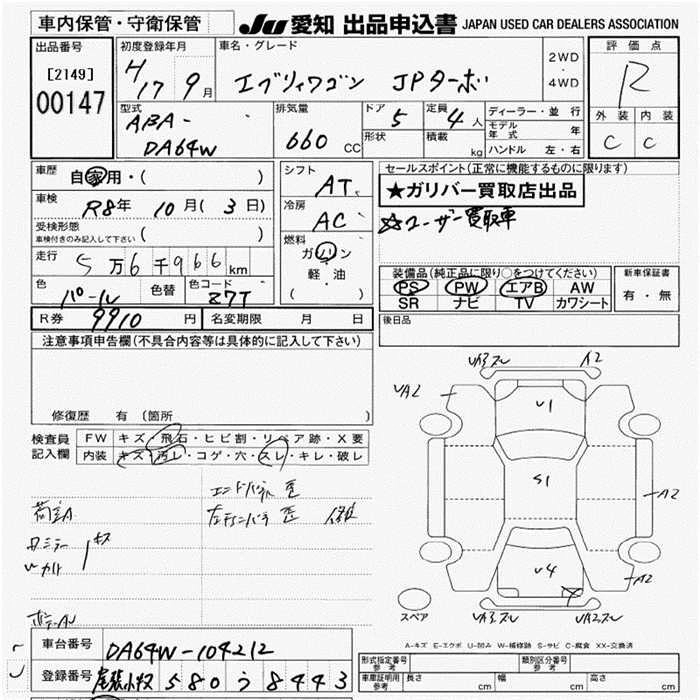 車内保管・守衛保管
JU 愛知 出品申込書 JAPAN USED CAR DEALERS ASSOCIATION
出品番号
[2149]
00147
初度登録年月
H17 9月
車名・グレード
エブリィワゴン JPターボ
2WD
・
4WD
評価点
R
外装 内装
C C
型式
ABA-
DA64W
排気量
660 CC
ドア
5
定員
4人
形状
積載
kg
ディーラー・並行
モデル年式 年
ハンドル 左・右
車歴
自家用・( )
車検
R8年 10月(3日)
受検形態
車検付きのみ記入して下さい ( )
走行
5万6千966km
色
パール
色替
色コード
Z7T
シフト
AT
冷房
AC
燃料
ガソリン
軽・油
( )
セールスポイント(正常に機能するものに限ります)
★ガリバー買取店出品
☆ユーザー買取車
装備品(純正品に限り○をつけてください)
PS PW エアB AW
SR ナビ TV カワシート
新車保証書
有・無
R券 9910円
名変期限 月 日
後日品
注意事項申告欄(不具合内容等は具体的に記入して下さい)
修復歴 有(箇所 )
検査員
記入欄
FW キズ・飛石・ヒビ割・リペア跡・X要
内装 キズ・汚レ・コゲ・穴・スレ・キレ・破レ
エンドパネル歪
荷室A
キズ
UA2
A2
U1
S1
A2
U4
A2
スペア
A-キズ E-エクボ U-凹み W-補修跡 S-サビ C-腐食 XX-交換済
車台番号 DA64W-104212
登録番号 尾張小牧 580う8443
形式指定番号
参考
類別区分番号
参考
車庫証明用
参考
長さ cm 幅 cm 高さ cm